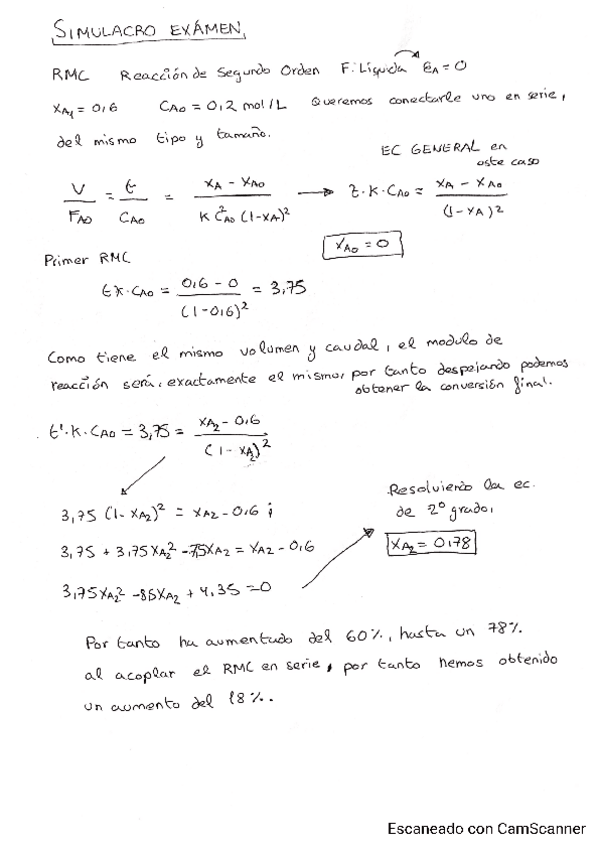 SIMULACRO EXÁMEN,
RMC Reacción de Segundo Orden F. Líquida εA = 0
XA1 = 0,6 CA0 = 0,2 mol/L Queremos conectarle uno en serie,
del mismo tipo y tamaño.
EC GENERAL en
este caso
V/FA0 = τ/CA0 = (XA - XA0)/(K C²A0 (1-XA)²) → τ·K·CA0 = (XA - XA0)/(1-XA)²
XA0 = 0
Primer RMC
τK·CA0 = (0,6 - 0)/(1-0,6)² = 3,75
Como tiene el mismo volumen y caudal, el modulo de
reacción será, exactamente el mismo, por tanto despejando podemos
obtener la conversión final.
τ'·K·CA0 = 3,75 = (XA2 - 0,6)/(1-XA2)²
3,75 (1-XA2)² = XA2 - 0,6 ;
3,75 + 3,75XA2² - 7,5XA2 = XA2 - 0,6
3,75XA2² - 8,5XA2 + 4,35 = 0
Resolviendo la ec.
de 2º grado,
XA2 = 0,78
Por tanto ha aumentado del 60%, hasta un 78%
al acoplar el RMC en serie, por tanto hemos obtenido
un aumento del 18%.
Escaneado con CamScanner